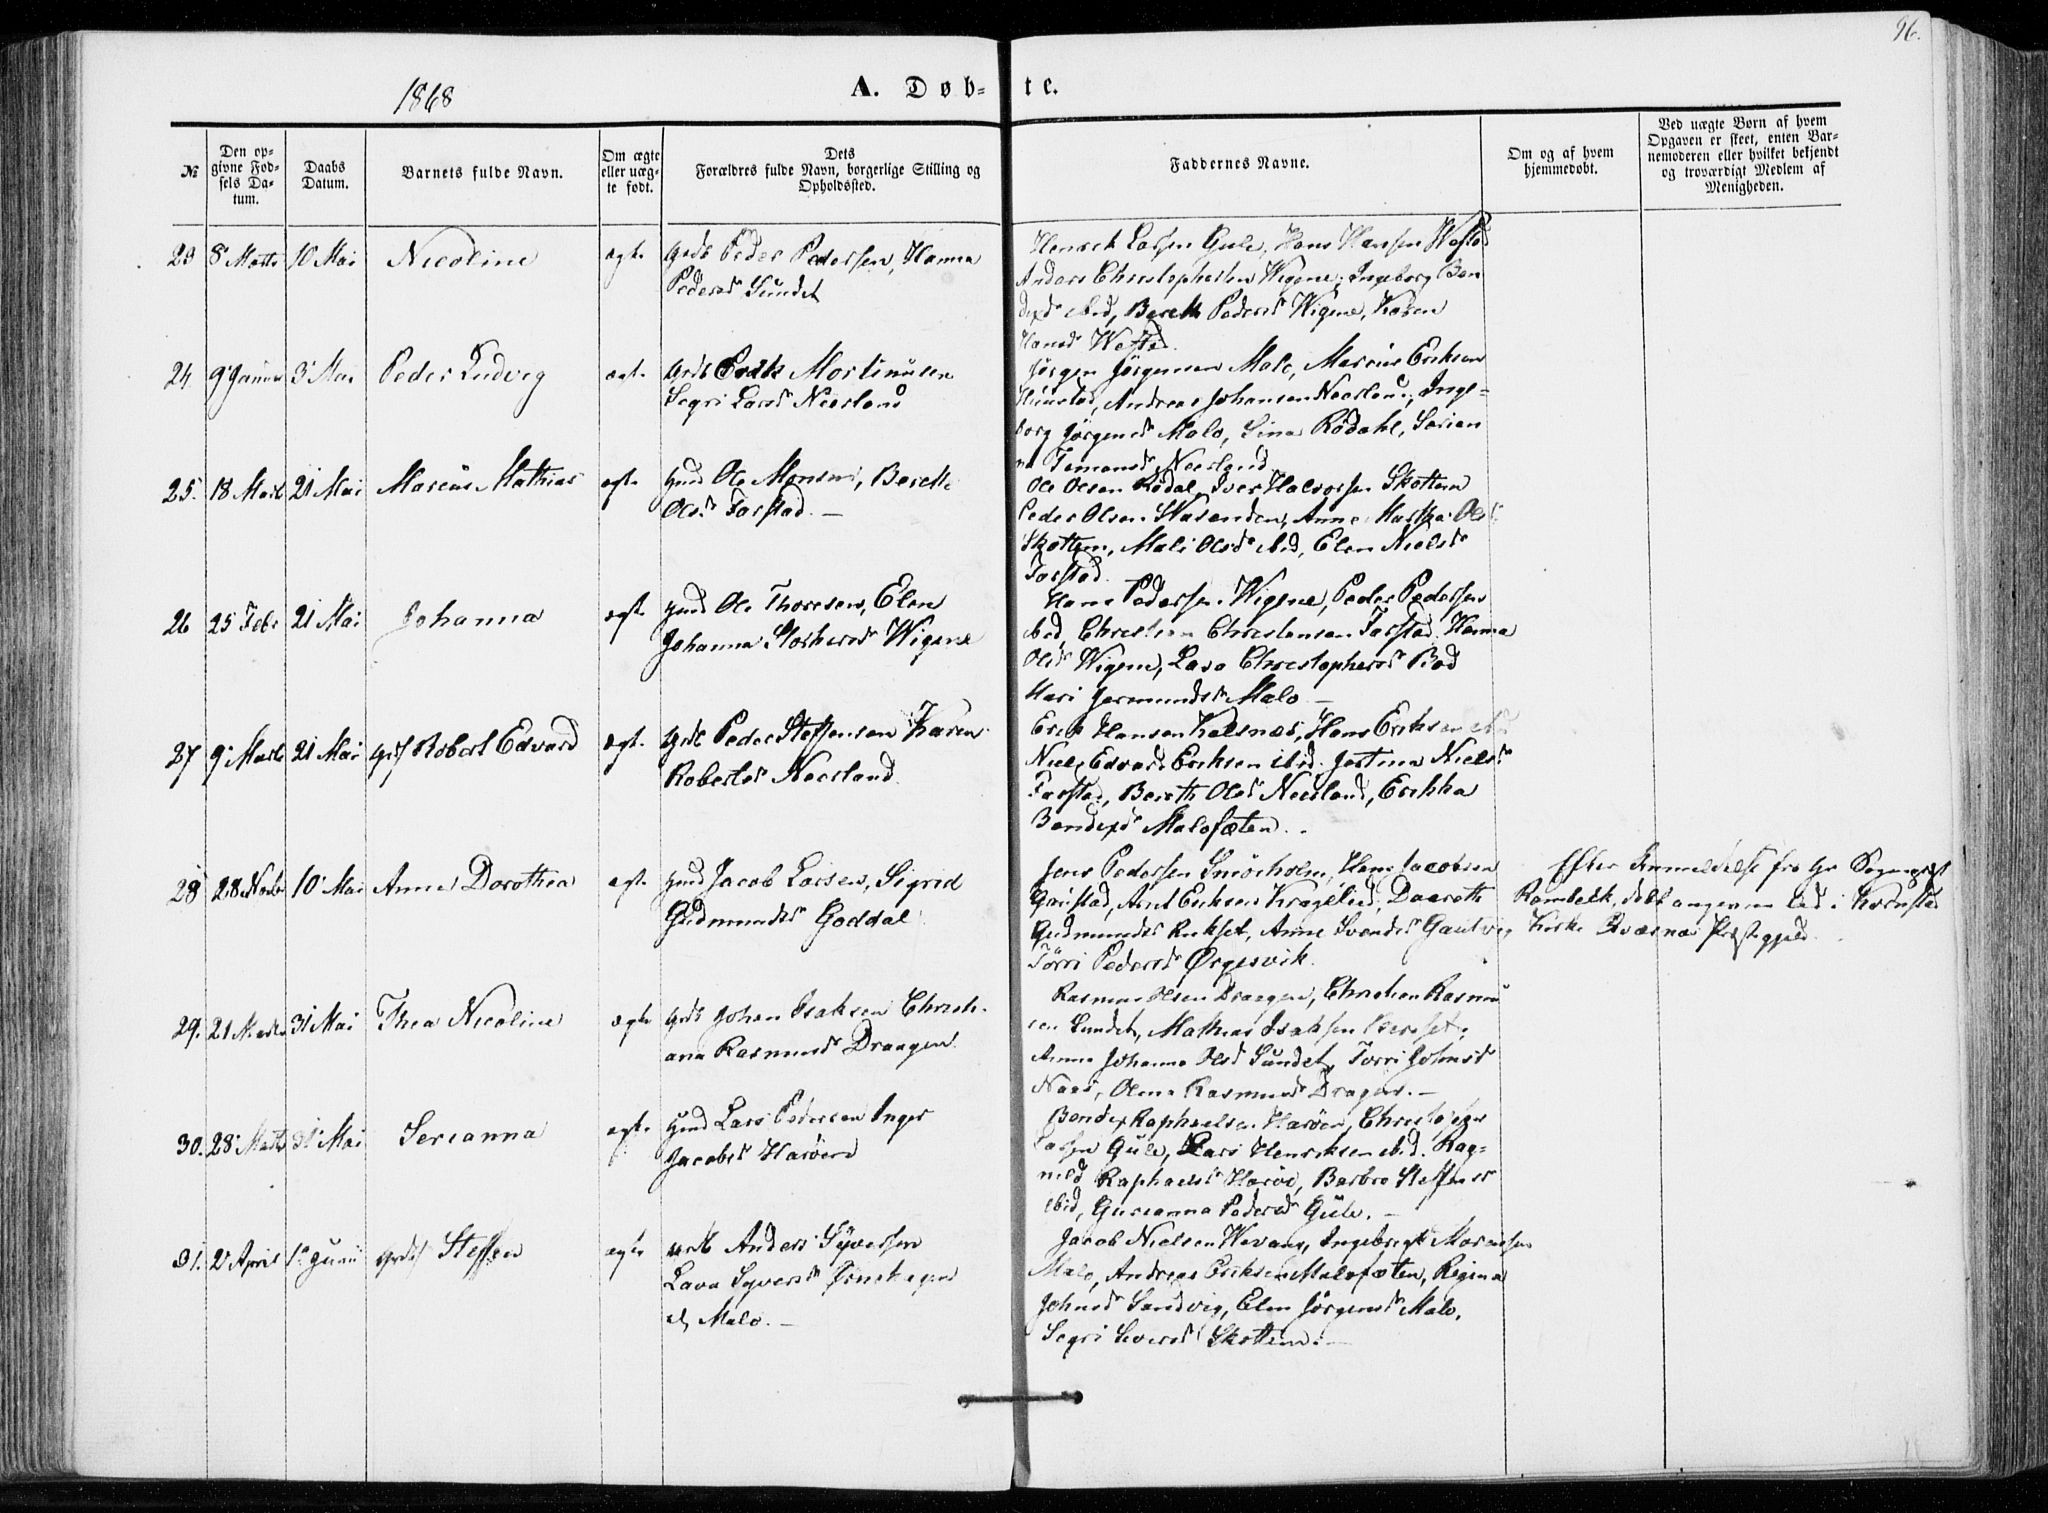 96.
1868
A. Døb-te.
№
Den op-
givne Fød-
sels Da-
tum.
Daabs
Datum.
Barnets fulde Navn.
Om ægte
eller uæg-
te født.
Dets
Forældres fulde Navn, borgerlige Stilling og
Opholdssted.
Faddernes Navne.
Om og af hvem
hjemmedøbt.
Ved uægte Børn af hvem
Opgaven er skeet, enten Bar-
nemoderen eller hvilket bekjendt
og troværdigt Medlem af
Menigheden.
23 8 Marts 10 Mai Nicoline ægte Grdb Peder Pedersen, Hanna
Pedersd Sundet
Henrik Larsen Gule, Hans Hansen Westad
Anders Christophersen Wigene, Ingeborg Ben
dixd ibid, Bereth Pedersd Wigene, Karen
Hansd Westad
24 9 Januar 3 Mai Peder Ludvig ægte Grdb Erik Martinusen
Segri Larsd Neerland
Jørgen Jørgensen Malo, Marius Eriksen
Andreas Johansen Neerland, Inge-
borg Jørgensd Malo, Sina Rødahl, Serian
na Tomansd Neerland
25. 18 Marts 21 Mai Marius Mathias ægte Hmd Ole Monsen, Bereth
Olsd Farstad. —
Ole Olsen Rødal, Iver Halvorsen Skottem
Peder Olsen Anne Martha Olsd
Skottem, Mali Olsd ibid, Elen Nielsd
Farstad.
26 25 Febr 21 Mai Johanna ægte Hmd Ole Thoresen, Elen
Johanna Wigene
Hans Pedersen Wigene, Peder Pedersen
ibid, Christian Christensen Farstad, Hanna
Olsd Wigene, Lava Christophersd Bod
Mari Germundsd Malo —
27 9 Marts 21 Mai Robert Edvard ægt. Grdb Peder Steffensen Karen
Robertsd Neerland
Erik Hansen Kalsnæs, Hans Eriksen ibd
Niels Edvard Eriksen ibid. Jertina Nielsd
Farstad, Bereth Olsd Neerland, Erikka
Bendixd Malofæten.
28 28 Novbr 10 Mai Anne Dorothea ægte Hmd Jacob Larsen, Sigrid
Gudmundsd Goddal
Jens Pedersen Smörholm, Hans Jacobsen
Gaustad, Arnt Eriksen Daareth
Gudmundsd Rekset, Anne Svendsd Gautvig
Törri Pedersd Ørgesvik.
Efter Anmeldelse fra Hr Sognepræst
i Kvernæs
Kirke Qværnæs Præstegjeld.
29. 21 Marts 31 Mai Thea Nicoline ægte Grdb Johan Isaksen Christi-
ana Rasmusd Draagen.
Rasmus Olsen Draagen, Christian Rasmu
sen Sundet, Mathias Isaksen
Anne Johanna Olsd Sundet, Torri Johnsd
Naas, Olena Rasmusd Dragen. —
30. 28 Marts 31 Mai Serianna ægte Hmd Lars Pedersen Inger
Jacobsd Harøen
Bendix Raphaelsen Harøen, Christopher
Larsen Gule, Lars Henriksen ibid. Rag-
nild Raphaelsd Harøe, Barbro Steffensd
ibid, Gurianna Pedersd Gule. —
31. 2 April 1 Junii Steffen ægte Anders Syversen
Lava Syversd Ørnehagen
Malo. —
Jacob Nielsen Ingebrigt
Malo, Andreas Eriksen Malofæten, Regina
Johnsd Sandvig, Elen Jørgensd Malo,
Segri Siversd Skottem. —